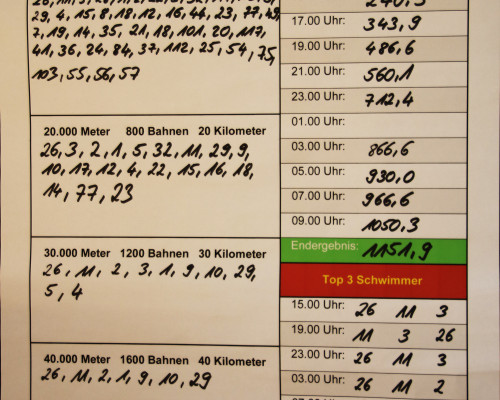 29, 4, 15, 8, 18, 12, 16, 44, 23, 77, 49,
7, 19, 14, 35, 21, 18, 101, 20, 117,
41, 36, 24, 84, 37, 112, 25, 54, 75,
103, 55, 56, 57
20.000 Meter 800 Bahnen 20 Kilometer
26, 3, 2, 1, 5, 32, 11, 29, 9,
10, 17, 12, 4, 22, 15, 16, 18,
14, 77, 23
30.000 Meter 1200 Bahnen 30 Kilometer
26, 11, 2, 3, 1, 9, 10, 29,
5, 4
40.000 Meter 1600 Bahnen 40 Kilometer
26, 11, 2, 1, 9, 10, 29
17.00 Uhr: 343,9
19.00 Uhr: 486,6
21.00 Uhr: 560,1
23.00 Uhr: 712,4
01.00 Uhr:
03.00 Uhr: 866,6
05.00 Uhr: 930,0
07.00 Uhr: 966,6
09.00 Uhr: 1050,3
Endergebnis: 1151,9
Top 3 Schwimmer
15.00 Uhr: 26 11 3
19.00 Uhr: 11 3 26
23.00 Uhr: 26 11 3
03.00 Uhr: 26 11 2